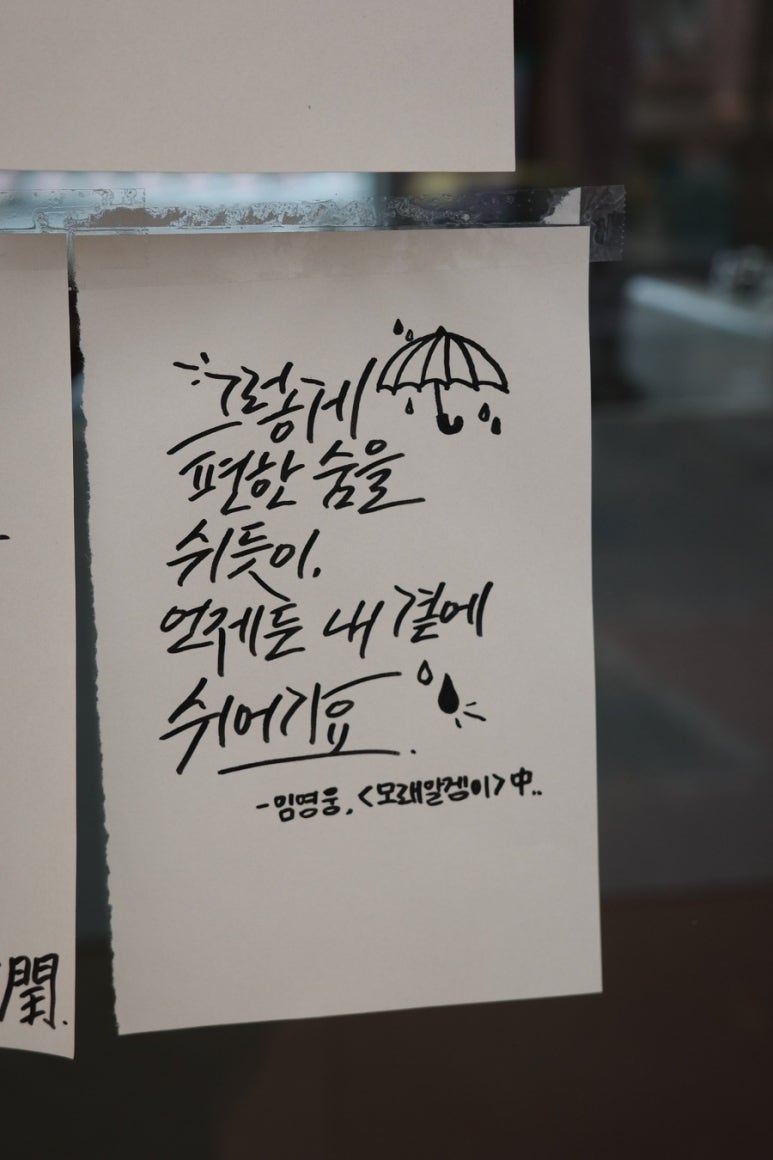 그렇게
편한 숨을
쉬듯이.
언제든 내 곁에
쉬어가요.
-임영웅, <모래알겡이>中..
閏.